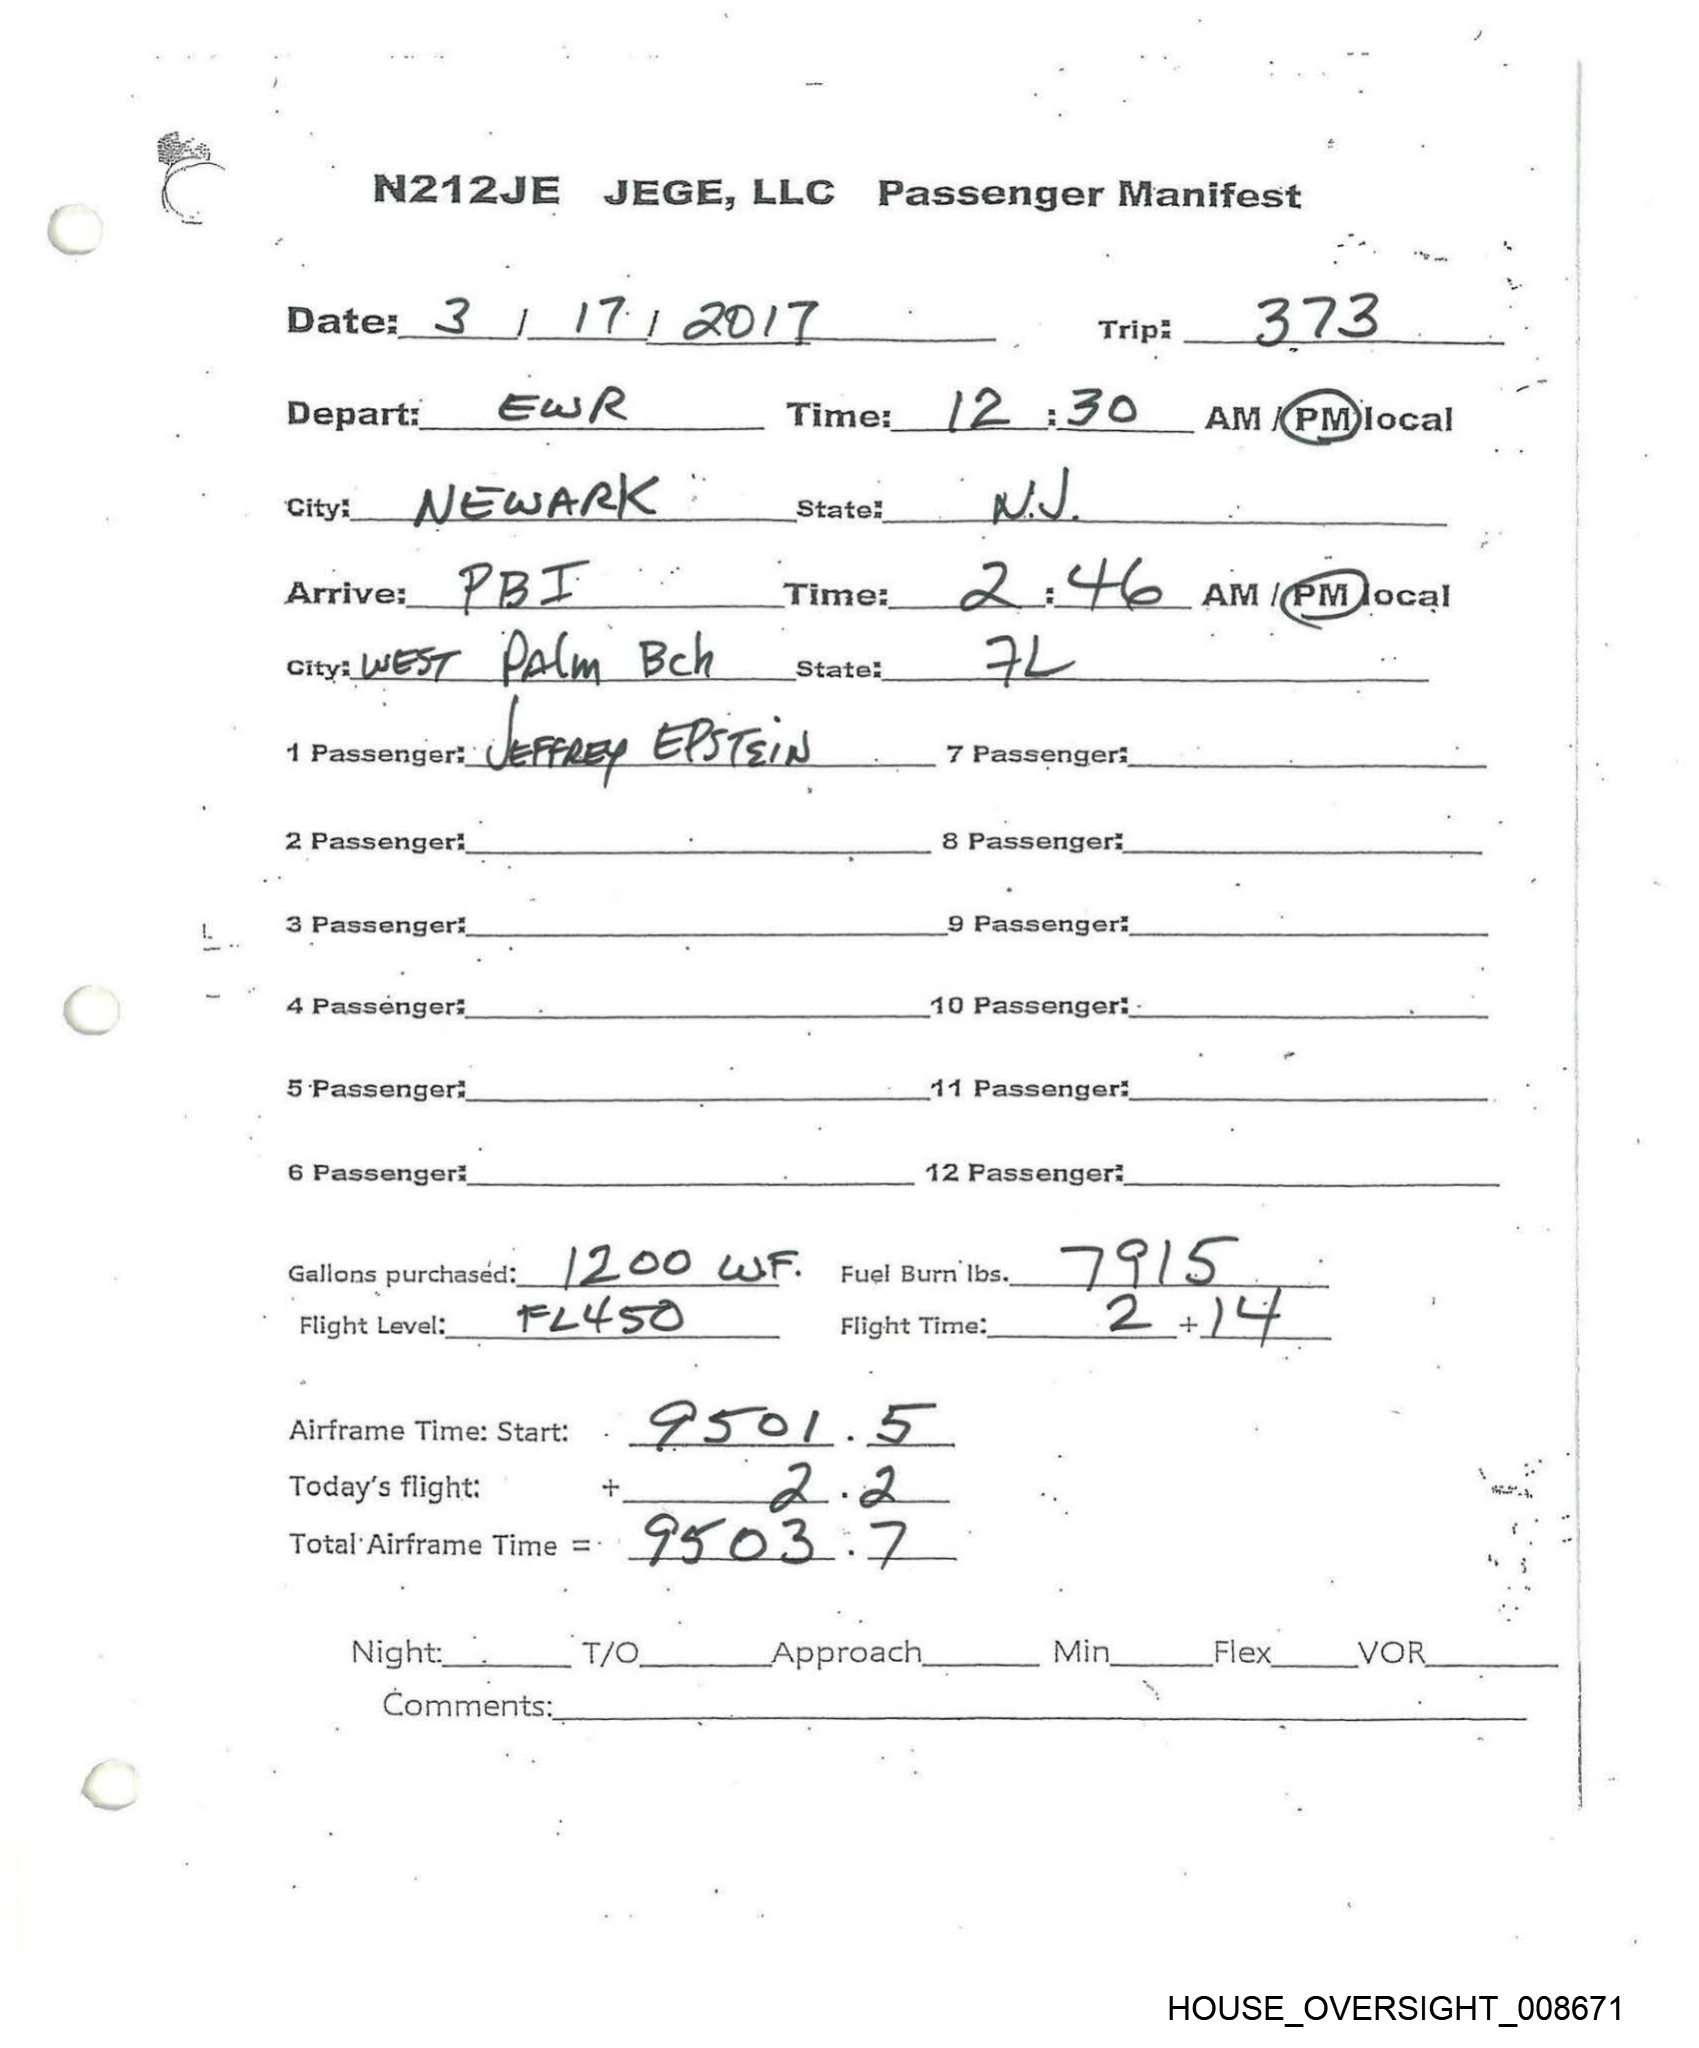 N212JE JEGE, LLC Passenger Manifest
Date: 3 / 17 / 2017 Trip: 373
Depart: EWR Time: 12 : 30 AM / PM local
City: NEWARK State: N.J.
Arrive: PBI Time: 2 : 46 AM / PM local
City: WEST PAlm Bch State: FL
1 Passenger: JEFFREY EPSTEIN 7 Passenger:
2 Passenger: 8 Passenger:
3 Passenger: 9 Passenger:
4 Passenger: 10 Passenger:
5 Passenger: 11 Passenger:
6 Passenger: 12 Passenger:
Gallons purchased: 1200 W.F. Fuel Burn lbs. 7915
Flight Level: FL450 Flight Time: 2 + 14
Airframe Time: Start: 9501 . 5
Today's flight: + 2 . 2
Total Airframe Time = 9503 . 7
Night: T/O Approach Min Flex VOR
Comments:
HOUSE_OVERSIGHT_008671